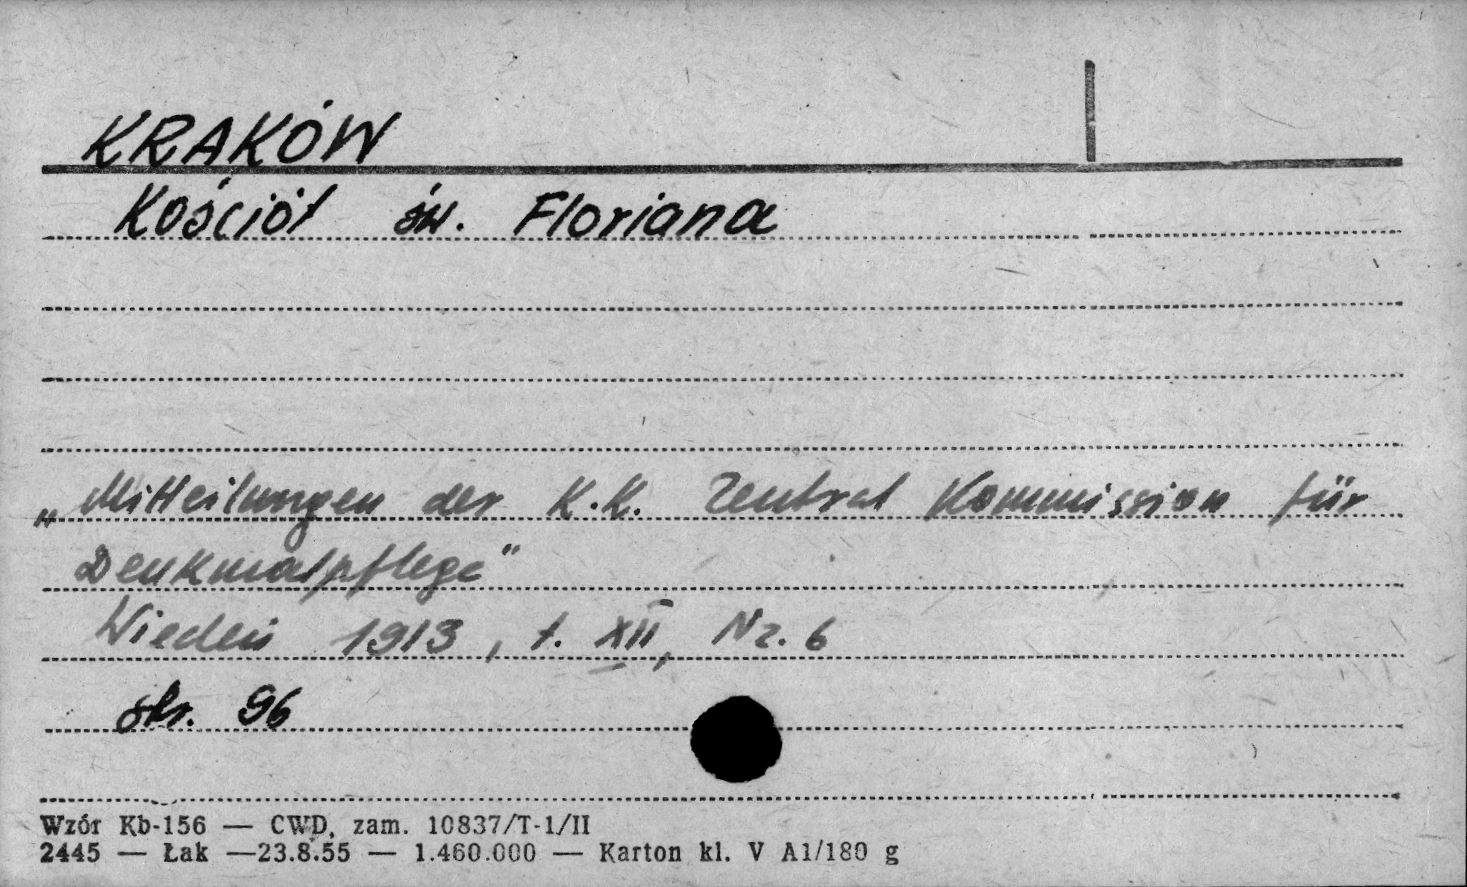 KRAKÓW
Kościół św. Floriana
„Mitteilungen der K.K. Zentral Kommission für
Denkmalpflege"
Wiedeń 1913, t. XII, Nr. 6
str. 96
Wzór Kb-156 — CWD, zam. 10837/T-1/II
2445 — Łak —23.8.55 — 1.460.000 — Karton kl. V A1/180 g